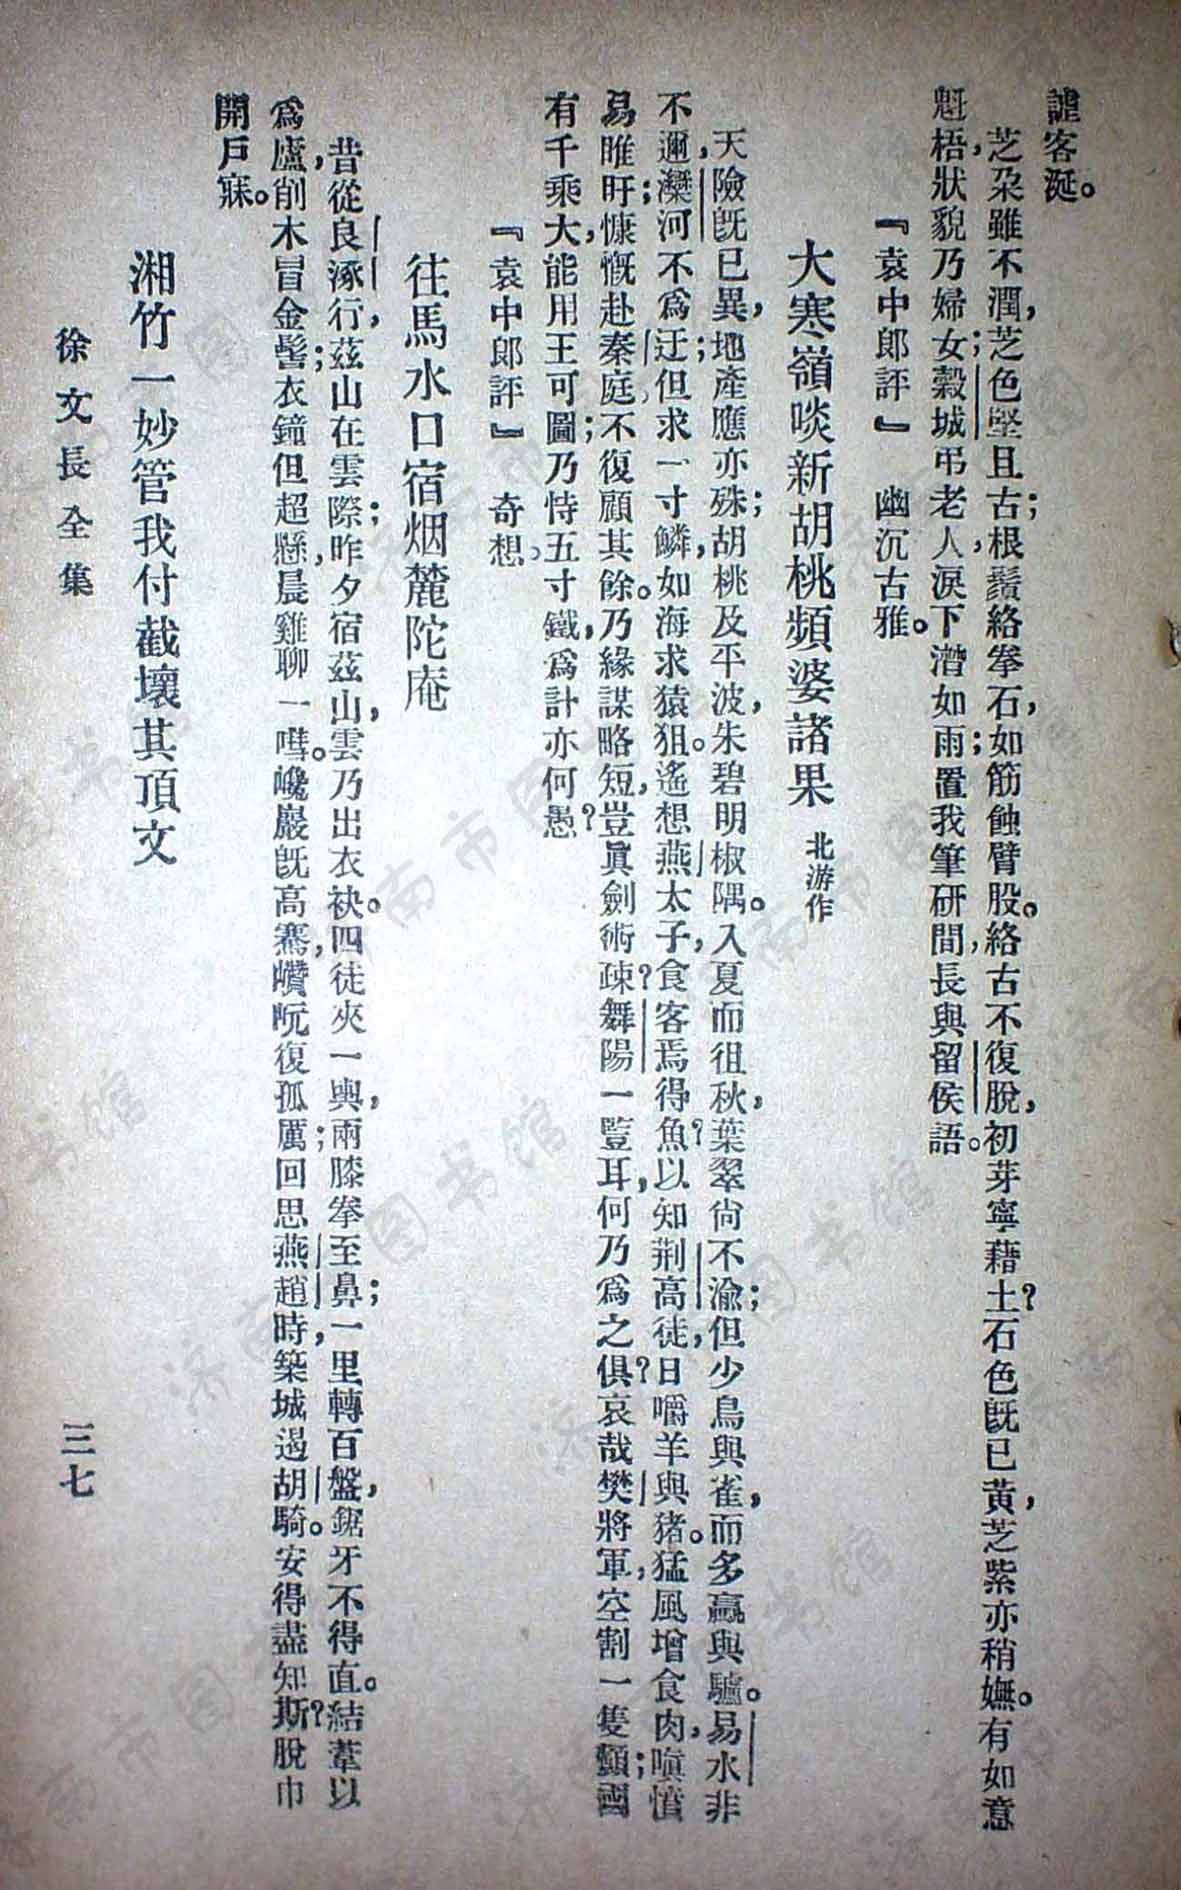 誑客涎。
芝朶雖不潤，芝色堅且古；根鬚絡拳石，如筋蝕臂股。絡古不復脫，初芽寧藉土？石色既已黃，芝紫亦稍嫵。有如意
魁梧，狀貌乃婦女；穀城弔老人，淚下潸如雨；置我筆研間，長與留侯語。
『袁中郎評』　幽沉古雅。
大寒嶺啖新胡桃頻婆諸果　北游作
天險既已異，地產應亦殊；胡桃及平波，朱碧明椒隅。入夏而徂秋，葉翠尙不渝；但少鳥與雀，而多驘與驢。易水非
不邇，灤河不爲迂；但求一寸鱗，如海求猿狙。遙想燕太子，食客焉得魚？以知荆高徒，日嚼羊與猪。猛風增食肉，嗔憤
易睢盱；慷慨赴秦庭，不復顧其餘。乃緣謀略短，豈眞劍術疎？舞陽一豎耳，何乃爲之俱？哀哉樊將軍，空割一隻顱；國
有千乘大，能用王可圖；乃恃五寸鐵，爲計亦何愚？
『袁中郎評』　奇想。
往馬水口宿烟麓陀庵
昔從良涿行，茲山在雲際；昨夕宿茲山，雲乃出衣袂。四徒夾一輿，兩膝拳至鼻；一里轉百盤，鋸牙不得直。結葦以
爲廬，削木冒金髻；衣鐘但超懸，晨雞聊一嘒。巉巖既高騫，巑岏復孤厲；回思燕趙時，築城遏胡騎。安得盡知斯？脫巾
開戶寐。
湘竹一妙管我付截壞其頂文
徐文長全集
三七